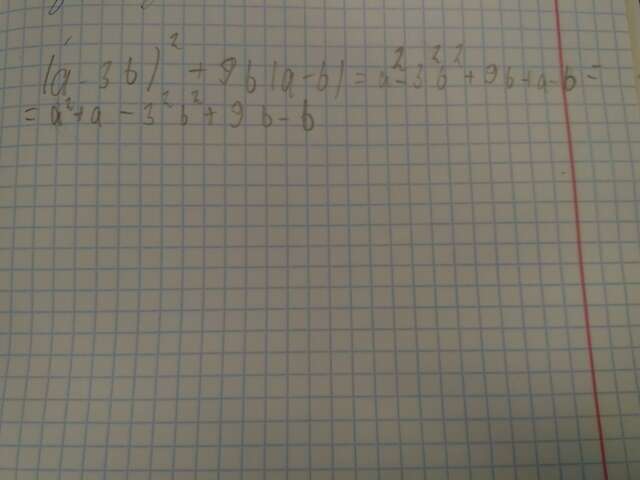 (a - 3b)² + 9b(a-b) = a² - 3²b² + 9b + a - b =
= a² + a - 3²b² + 9b - b